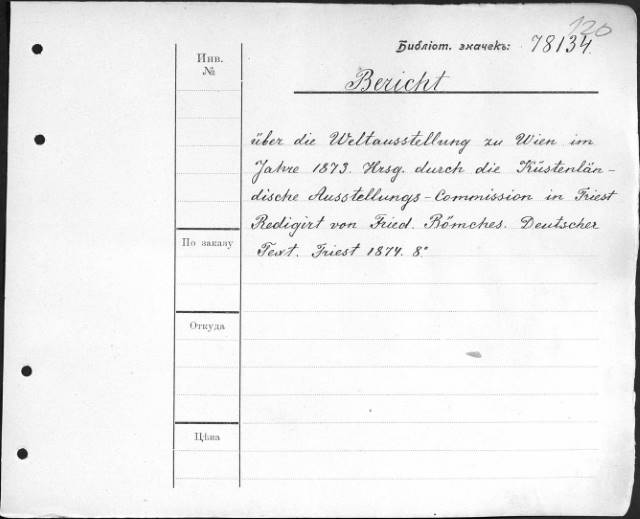 120
Библіот. значекъ: 78134.
Инв.
№
Bericht
über die Weltausstellung zu Wien im
Jahre 1873. Hrsg. durch die Küstenlän-
dische Ausstellungs-Commission in Triest
Redigirt von Fried. Bömches. Deutscher
Text. Triest 1874. 8°
По заказу
Откуда
Цѣна